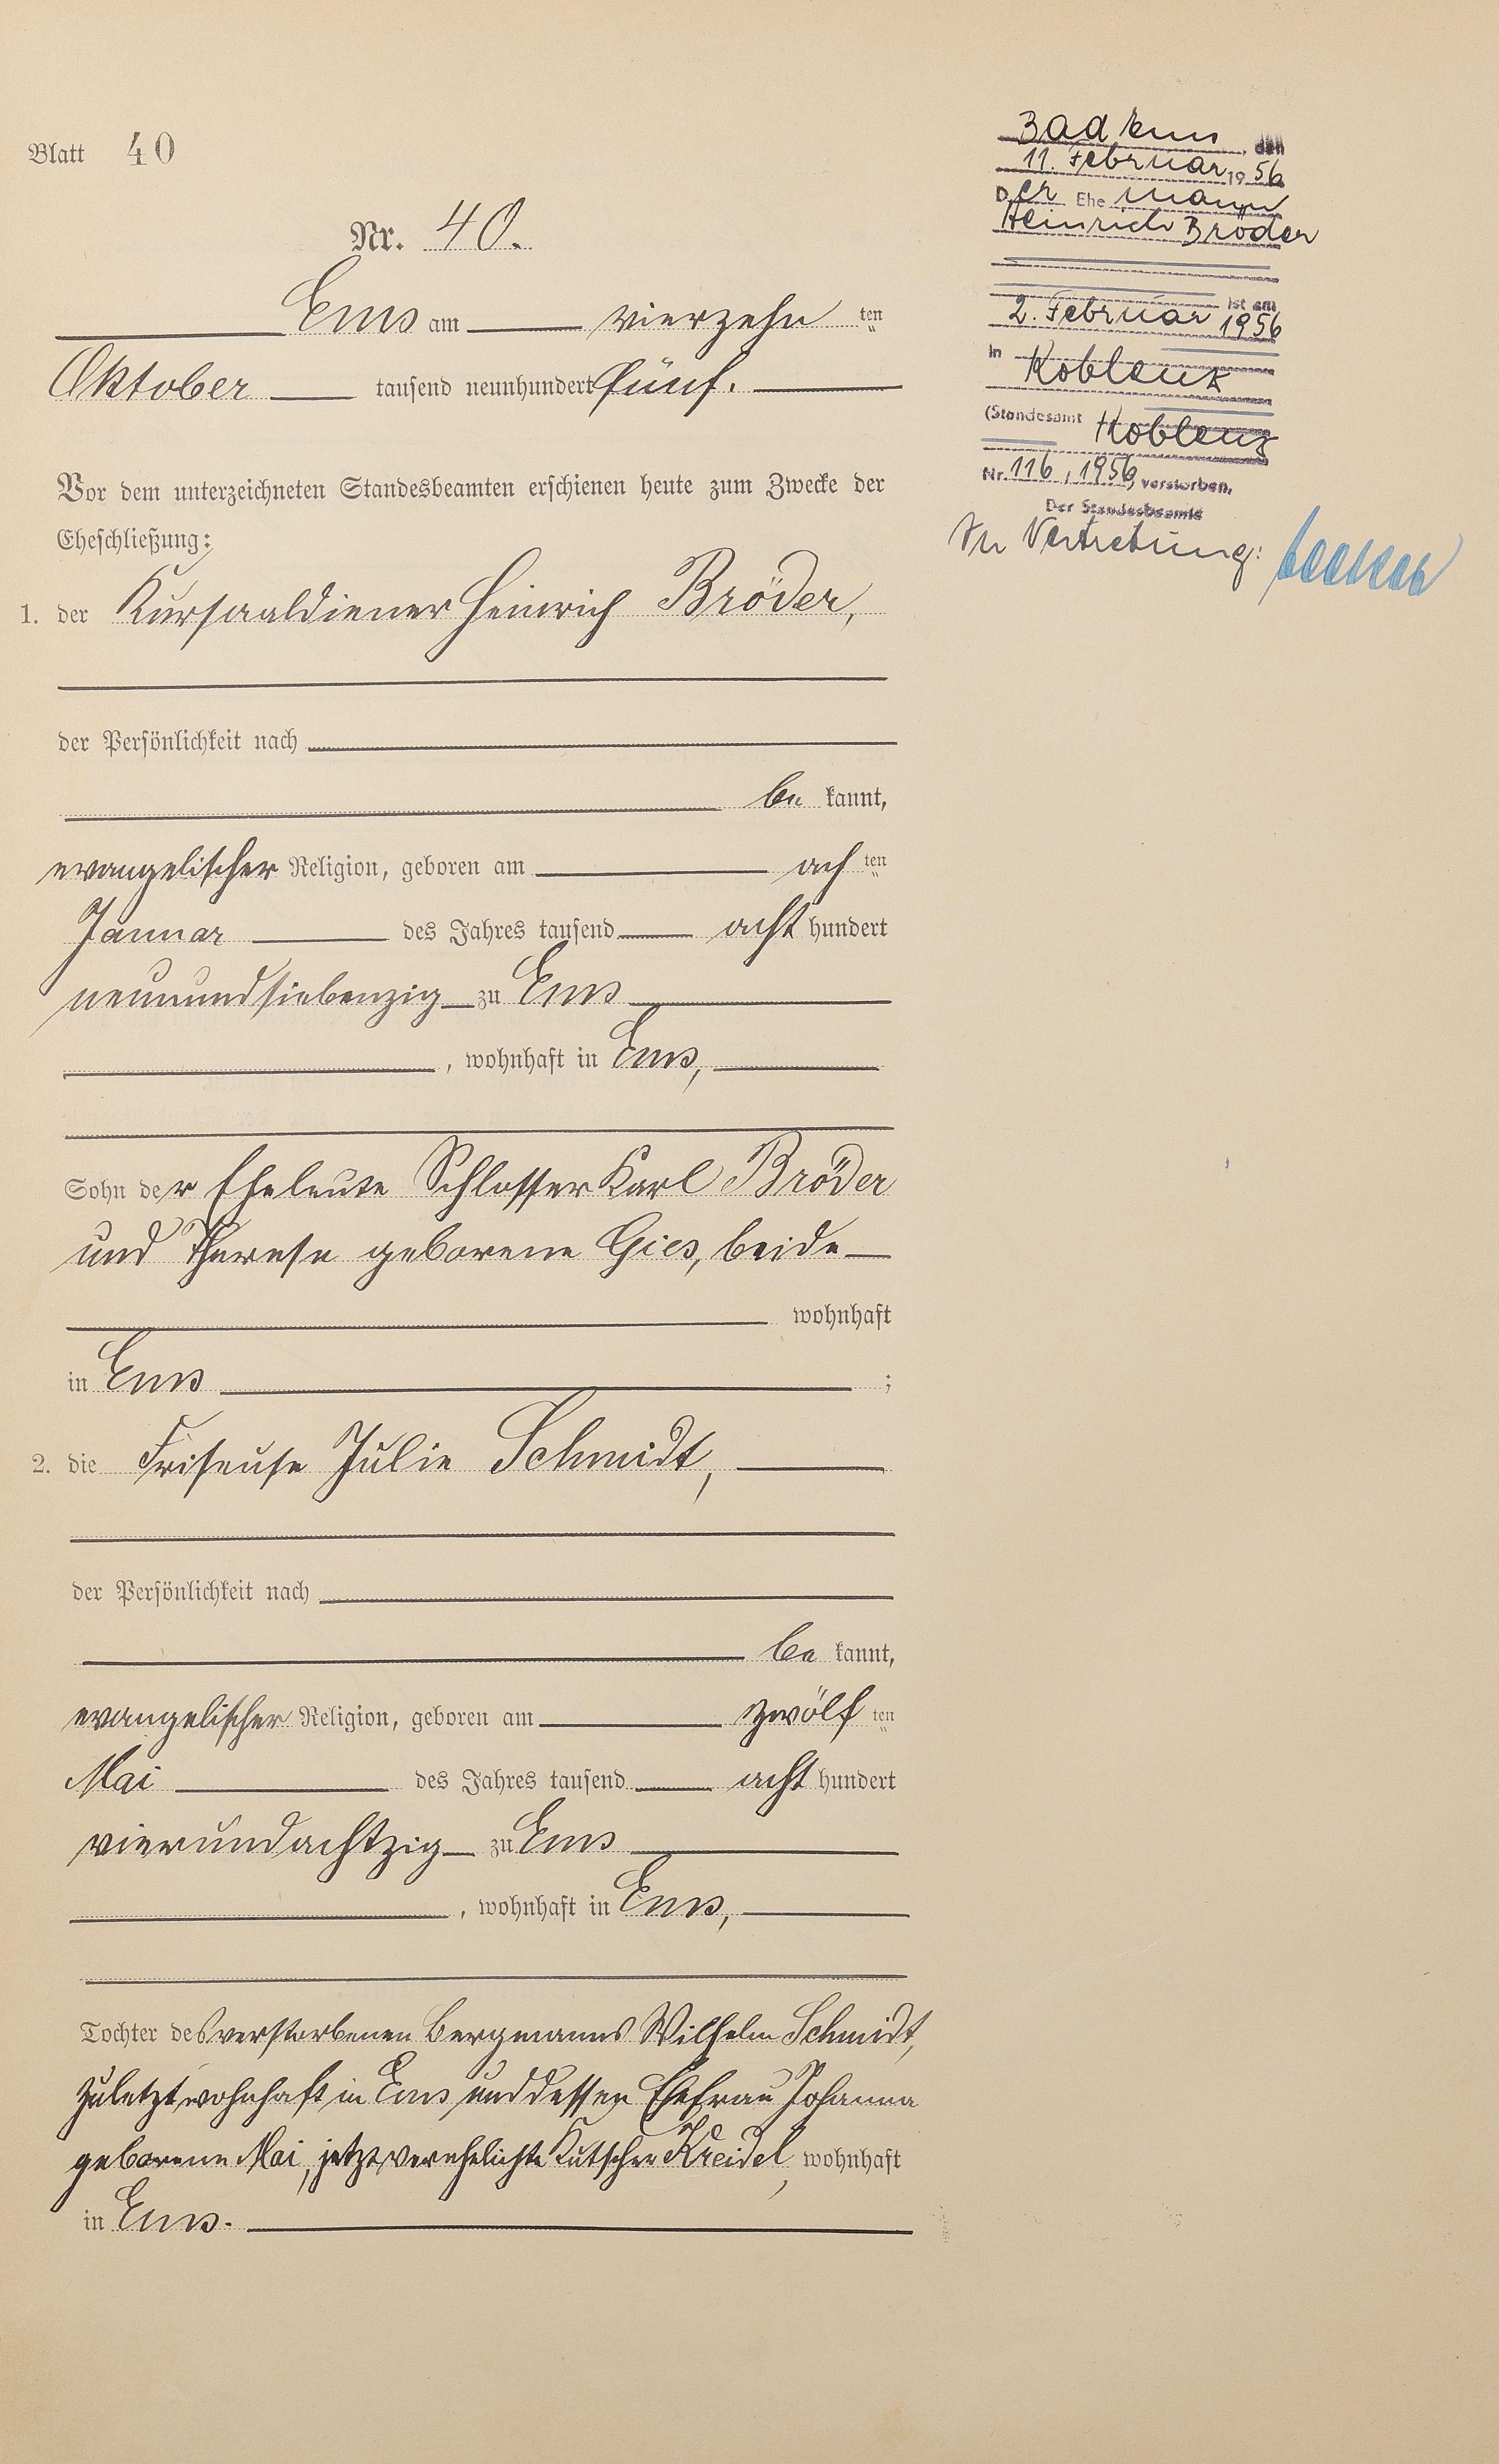 Blatt 40
Nr. 40.
Ems am vierzehn ten
Oktober tausend neunhundert fünf.
Vor dem unterzeichneten Standesbeamten erschienen heute zum Zwecke der
Eheschließung:
1. der Kursaaldiener Heinrich Bröder,
der Persönlichkeit nach
be kannt,
evangelischer Religion, geboren am ach ten
Januar des Jahres tausend acht hundert
neunundsiebenzig zu Ems
, wohnhaft in Ems,
Sohn der Eheleute Schlosser Karl Bröder
und Therese geborene Gies, beide
wohnhaft
in Ems ;
2. die Friseuse Julie Schmidt,
der Persönlichkeit nach
be kannt,
evangelischer Religion, geboren am zwölf ten
Mai des Jahres tausend acht hundert
vierundachtzig zu Ems
, wohnhaft in Ems,
Tochter des verstorbenen Bergmanns Wilhelm Schmidt,
zuletzt wohnhaft in Ems und dessen Ehefrau Johanna
geborene Mai, jetzt verehelichte Kutscher Kreidel, wohnhaft
in Ems.
Bad Ems, den
11. Februar 1956
Der Ehe mann
Heinrich Bröder
ist am
2. Februar 1956
in Koblenz
(Standesamt Koblenz
Nr. 116, 1956, verstorben.
Der Standesbeamte
In Vertretung: